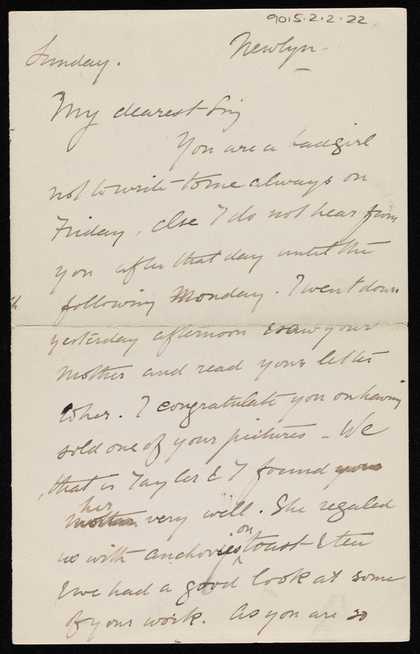 9015.2.2.22
Sunday. Newlyn.
My dearest
You are a bad girl
not to write to me always on
Friday, else I do not hear from
you after that day until the
following Monday. I went down
yesterday afternoon & saw your
mother and read your letter
to her. I congratulate you on having
sold one of your pictures - We
, that is Tayler & I found your
mother her very well. She regaled
us with anchovies on toast & tea
& we had a good look at some
of your work. As you are so